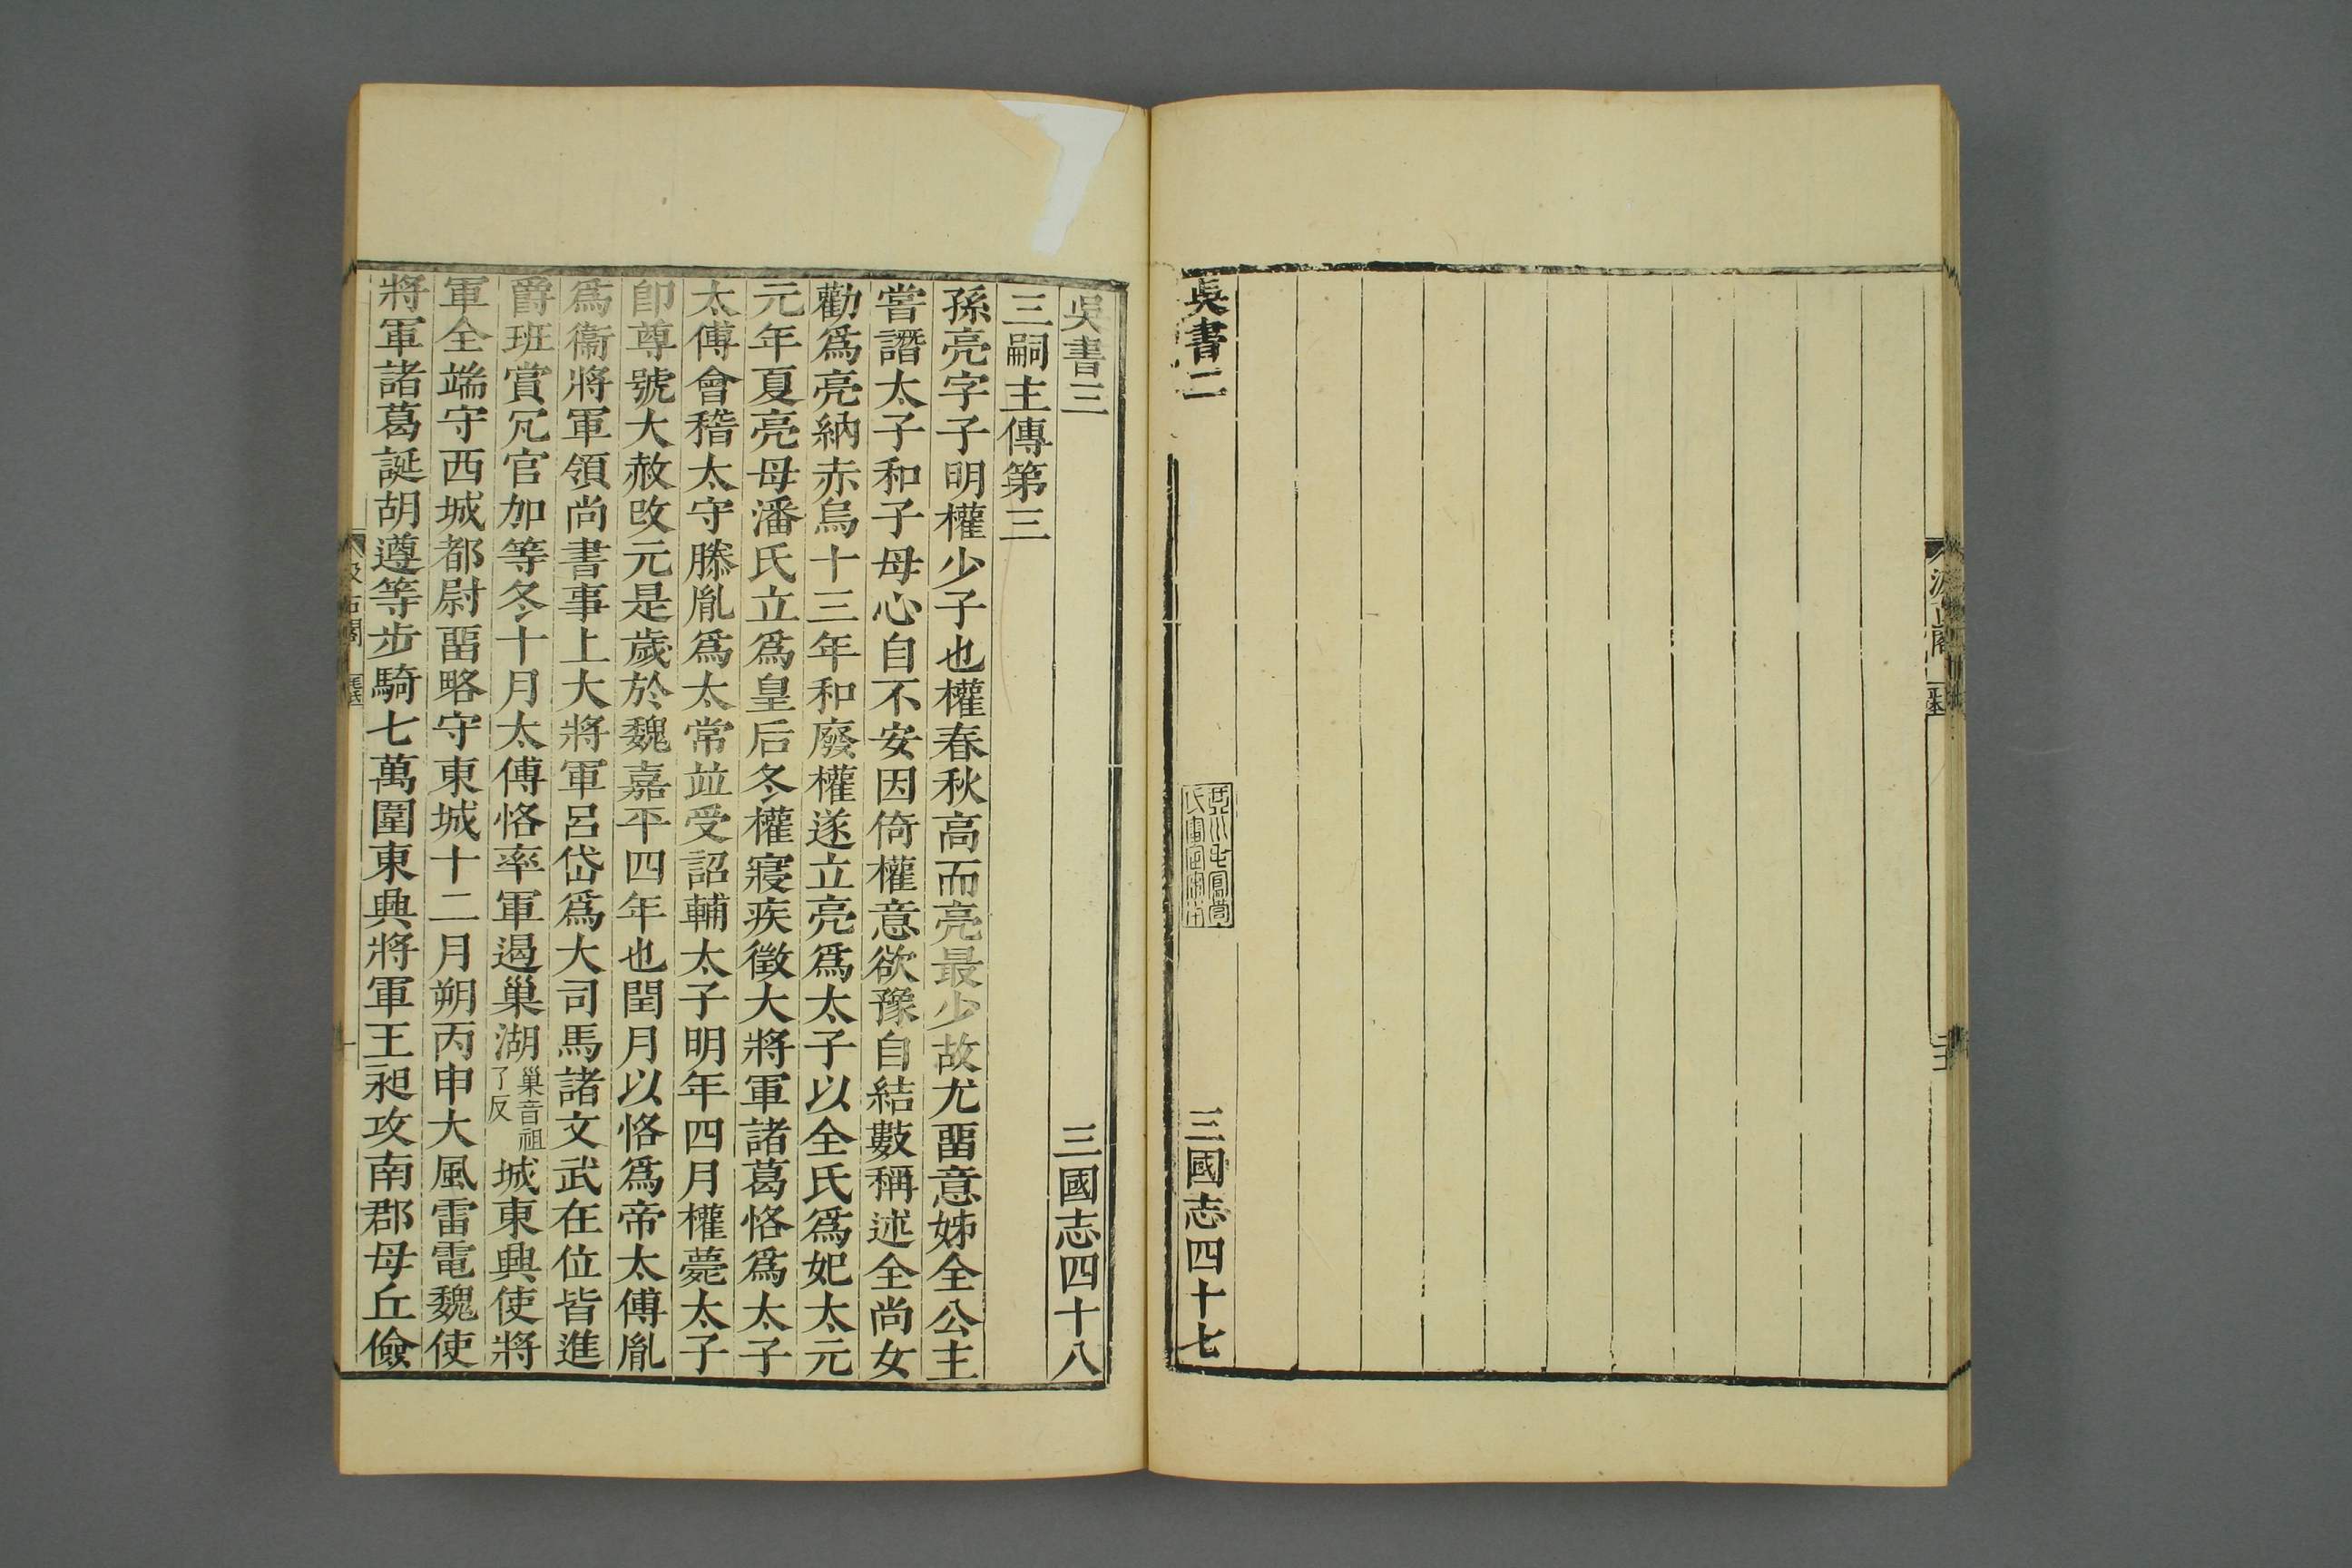 吳書二
三國志四十七
吳書三
三國志四十八
三嗣主傳第三
孫亮字子明權少子也權春秋高而亮最少故尤畱意姊全公主
嘗譖太子和子母心自不安因倚權意欲豫自結數稱述全尚女
勸爲亮納赤烏十三年和廢權遂立亮爲太子以全氏爲妃太元
元年夏亮母潘氏立爲皇后冬權寢疾徵大將軍諸葛恪爲太子
太傅會稽太守滕胤爲太常並受詔輔太子明年四月權薨太子
卽尊號大赦改元是歲於魏嘉平四年也閏月以恪爲帝太傅胤
爲衞將軍領尚書事上大將軍呂岱爲大司馬諸文武在位皆進
爵班賞冗官加等冬十月太傅恪率軍遏巢湖巢音祖了反城東興使將
軍全端守西城都尉畱略守東城十二月朔丙申大風雷電魏使
將軍諸葛誕胡遵等步騎七萬圍東興將軍王昶攻南郡毋丘儉